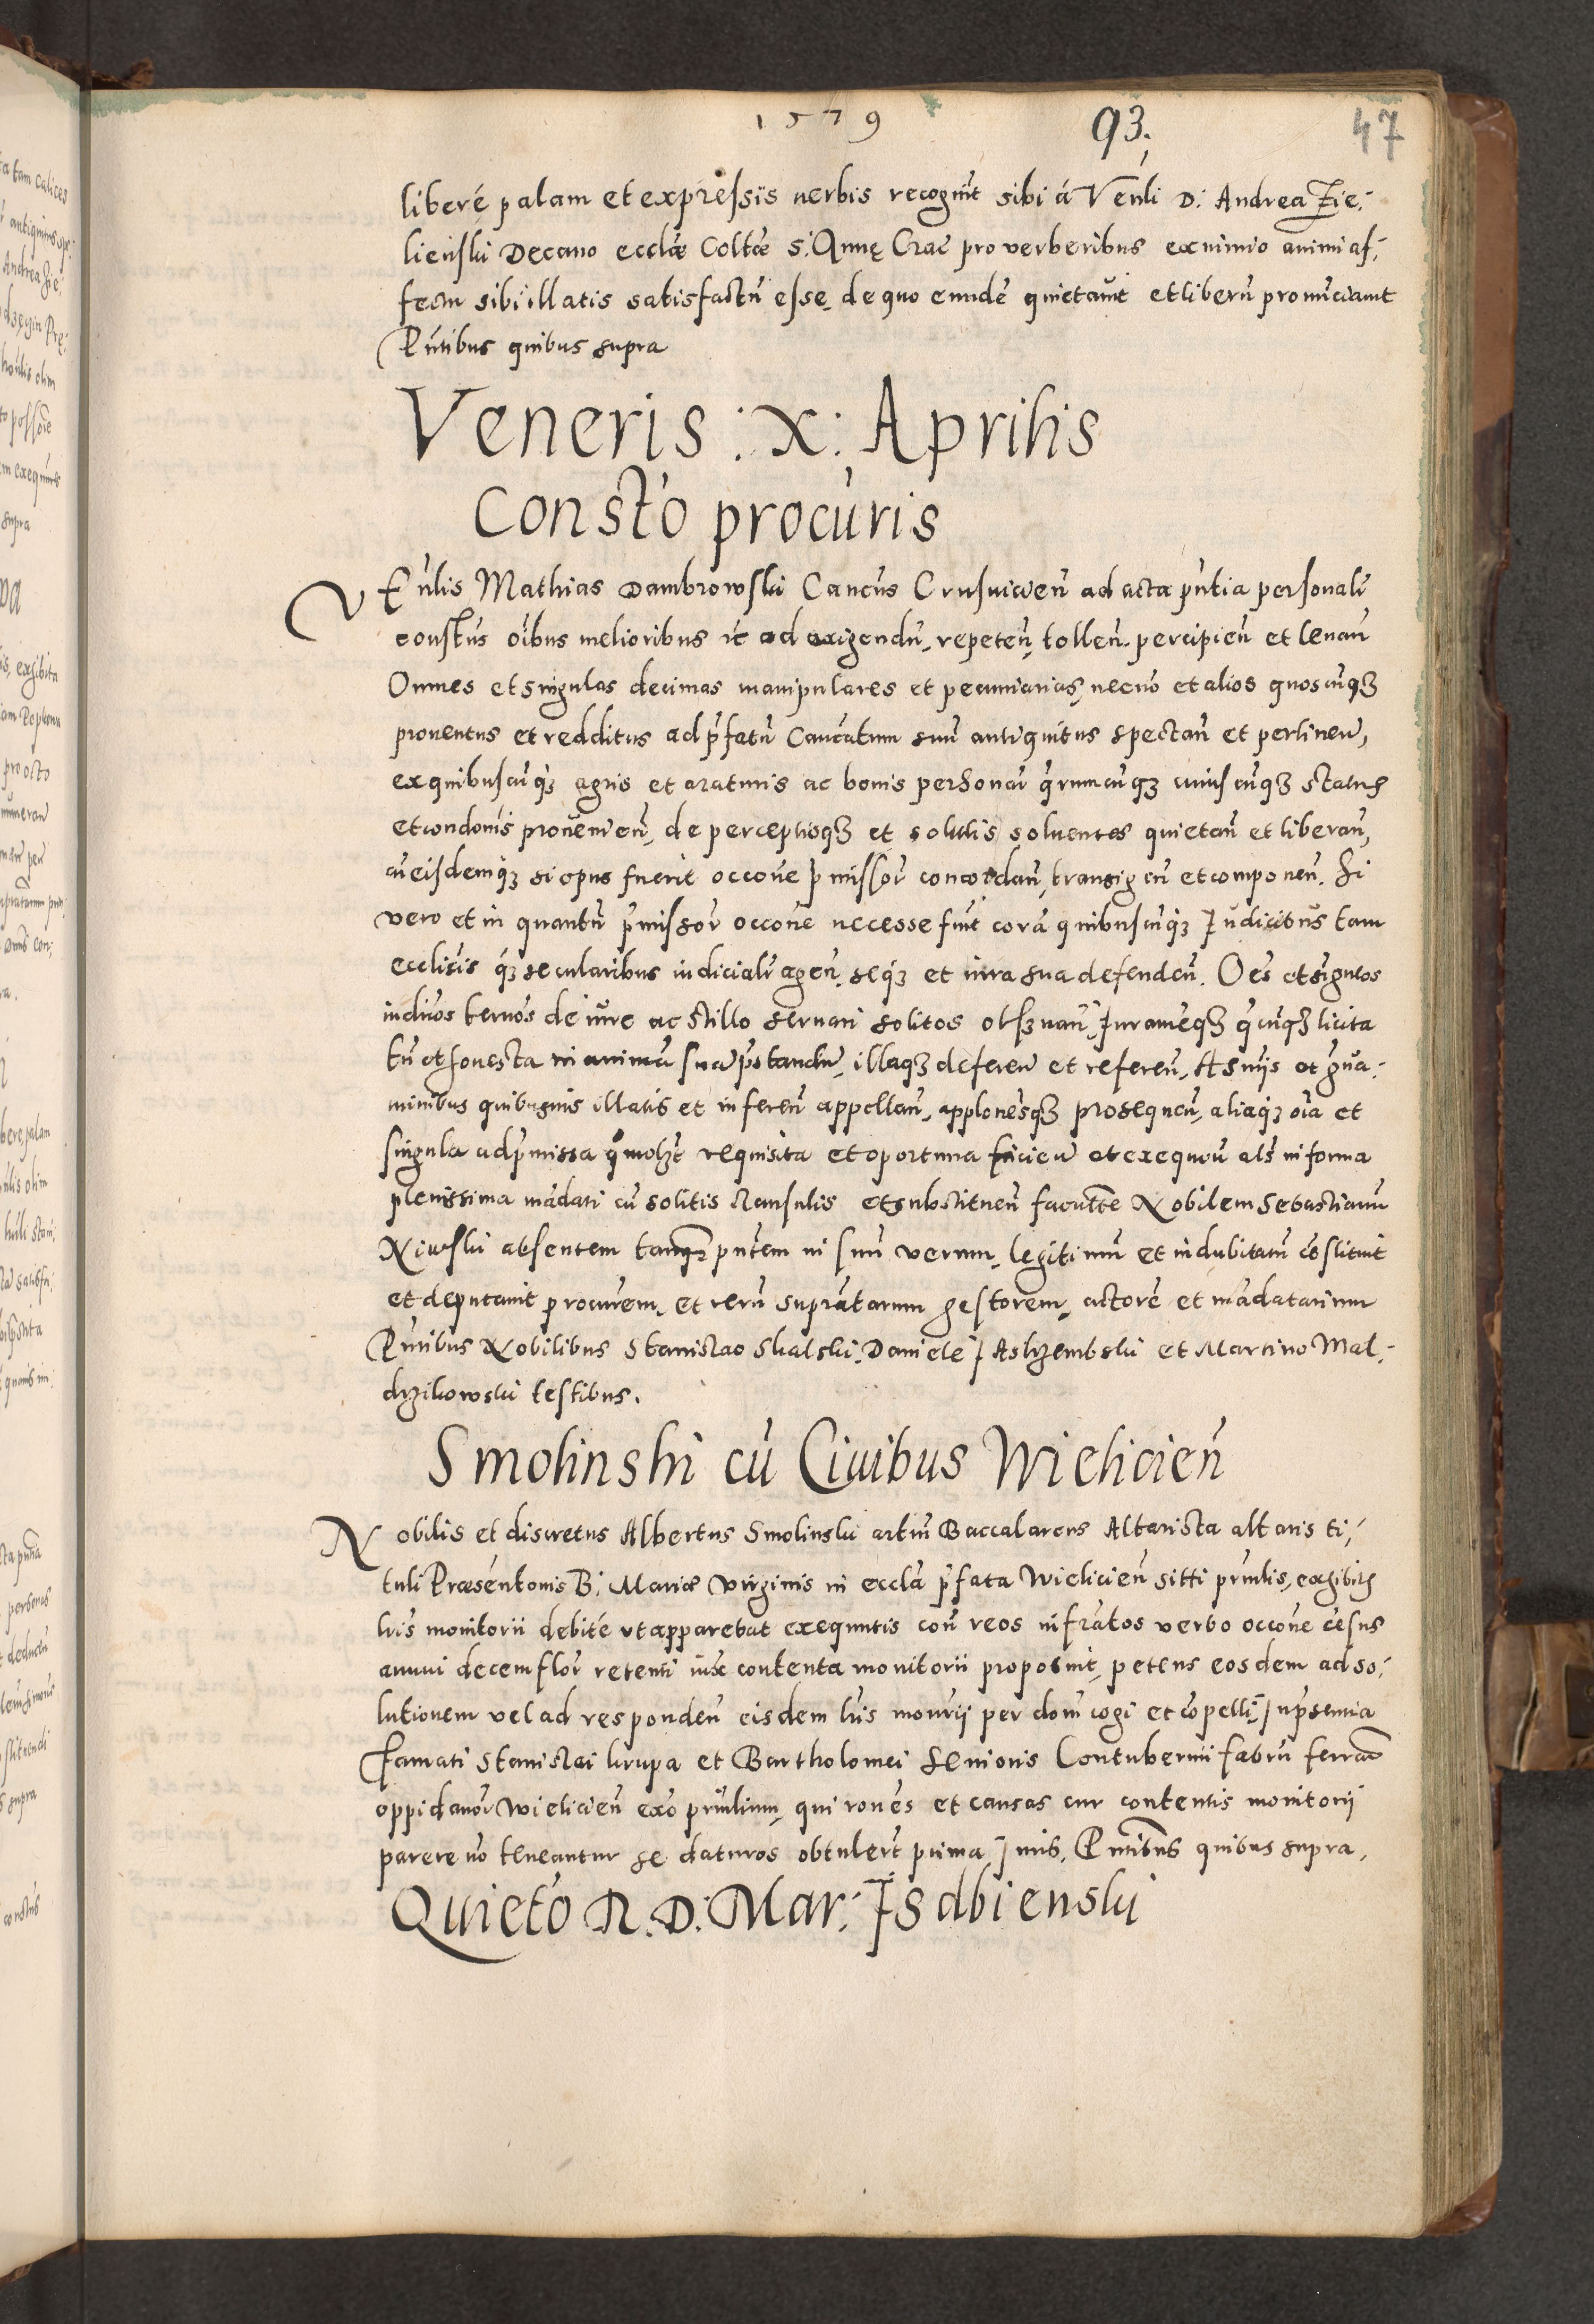 1579 93. 47
liberé palam et expressis verbis recognit sibi á Venli D: Andrea Zie:
lienski Decano ecclæ Coltæ S: Annę Crac pro verberibus ex nimio animi af:
fectu sibi illatis satisfactũ esse, de quo eundẽ quietavit et liberũ pronunciavit
Pñtibus quibus supra
Veneris : x: Aprilis
Constõ procuris
VEñlis Mathias Dambrowski Cancus Crusvicieñ ad acta pñtia personalr
constus oibus melioribus rc ad exigendũ, repeteñ, tolleñ. percipieñ et levan
Omnes et singulas decimas manipulares et pecuniarias, necno et alios quoscũqȝ
proventus et redditus ad pfatũ Cancatum suũ antiquitus spectañ et pertineñ,
ex quibuscũqȝ agris et araturis ac bonis personar qrumcũqȝ cuiuscũqȝ status
et condonis provenieñ, de perceptisqȝ et solutis solventes quietañ et liberañ,
cũ eisdemqȝ si opus fuerit occone pmissor concordañ, transigeñ et componeñ. Si
vero et in quantũ pmissor occone necesse fuit corã quibuscũqȝ Iudicibus tam
ecclicis qȝ secularibus iudicialr ageñ, seqȝ et iura sua defendeñ. Oes et singulos
indivos ternos de iure ac stillo servari solitos obsȝvañ, Iurameqȝ qcũqȝ licita
tñ et honesta in animã suã pstandũ, illaqȝ defereñ et refereñ, A sniis et gva:
minibus quibusvis illatis et infereñ appellañ, applonesqȝ prosequeñ, aliaqȝ oia et
singula ad pmissa qmolȝt requisita et oportuna facieñ et exequeñ als in forma
plenissima mãdati cũ solitis clausulis et substitueñ facultte Nobilem Sebastianũ
Niewski absentem tanqȝ pñtem in suũ verum, legitimũ et indubitatũ cõstituit
et deputavit procurem, et rerũ supratarum gestorem, actorẽ et mãdatarium
Pñtibus Nobilibus Stanislao Skalski, Daniele Jastrzembski et Martino Mal:
drzikowski testibus.
Smolinski cũ Civibus Wielicieñ
Nobilis et discretus Albertus Smolinski artiũ Baccalareus Altarista altaris ti:
tuli Præsentonis B: Mariæ Virginis in eccla pfata Wielicieñ sitti pñlis, exhibitis
lris monitorii debité ut apparebat exequutis coñ reos infratos verbo occone cesus
annui decem flor retenti iuxe contenta monitorii proposuit, petens eosdem ad so:
lutionem vel ad respondeñ eisdem lris monrii per dom cogi et cõpelli, In psentia
Famati Stanislai krupa et Bartholomei Senioris Contubernii fabrũ ferrar
oppidanor Wielicieñ exo pñlium, qui rones et causas cur contentis monitorii
parere no teneantur se daturos obtulert prima Iuris, Pñtibus quibus supra.
Quietõ R. D: Mar: Isdbienski